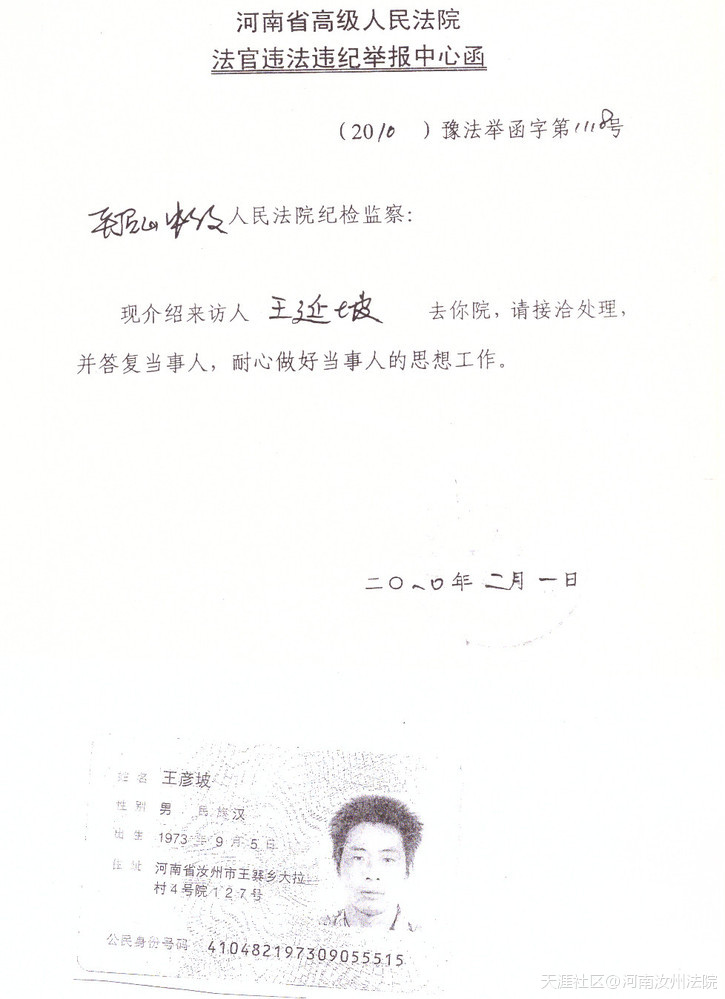 河南省高级人民法院
法官违法违纪举报中心函
(2010 )豫法举函字第1118号
平顶山中级人民法院纪检监察:
现介绍来访人 王延坡 去你院,请接洽处理,
并答复当事人,耐心做好当事人的思想工作。
二〇一〇年 二月 一日
姓名 王彦坡
性别 男 民族汉
出生 1973年9月5日
住址 河南省汝州市王寨乡大拉
村4号院127号
公民身份号码 410482197309055515
天涯社区@河南汝州法院